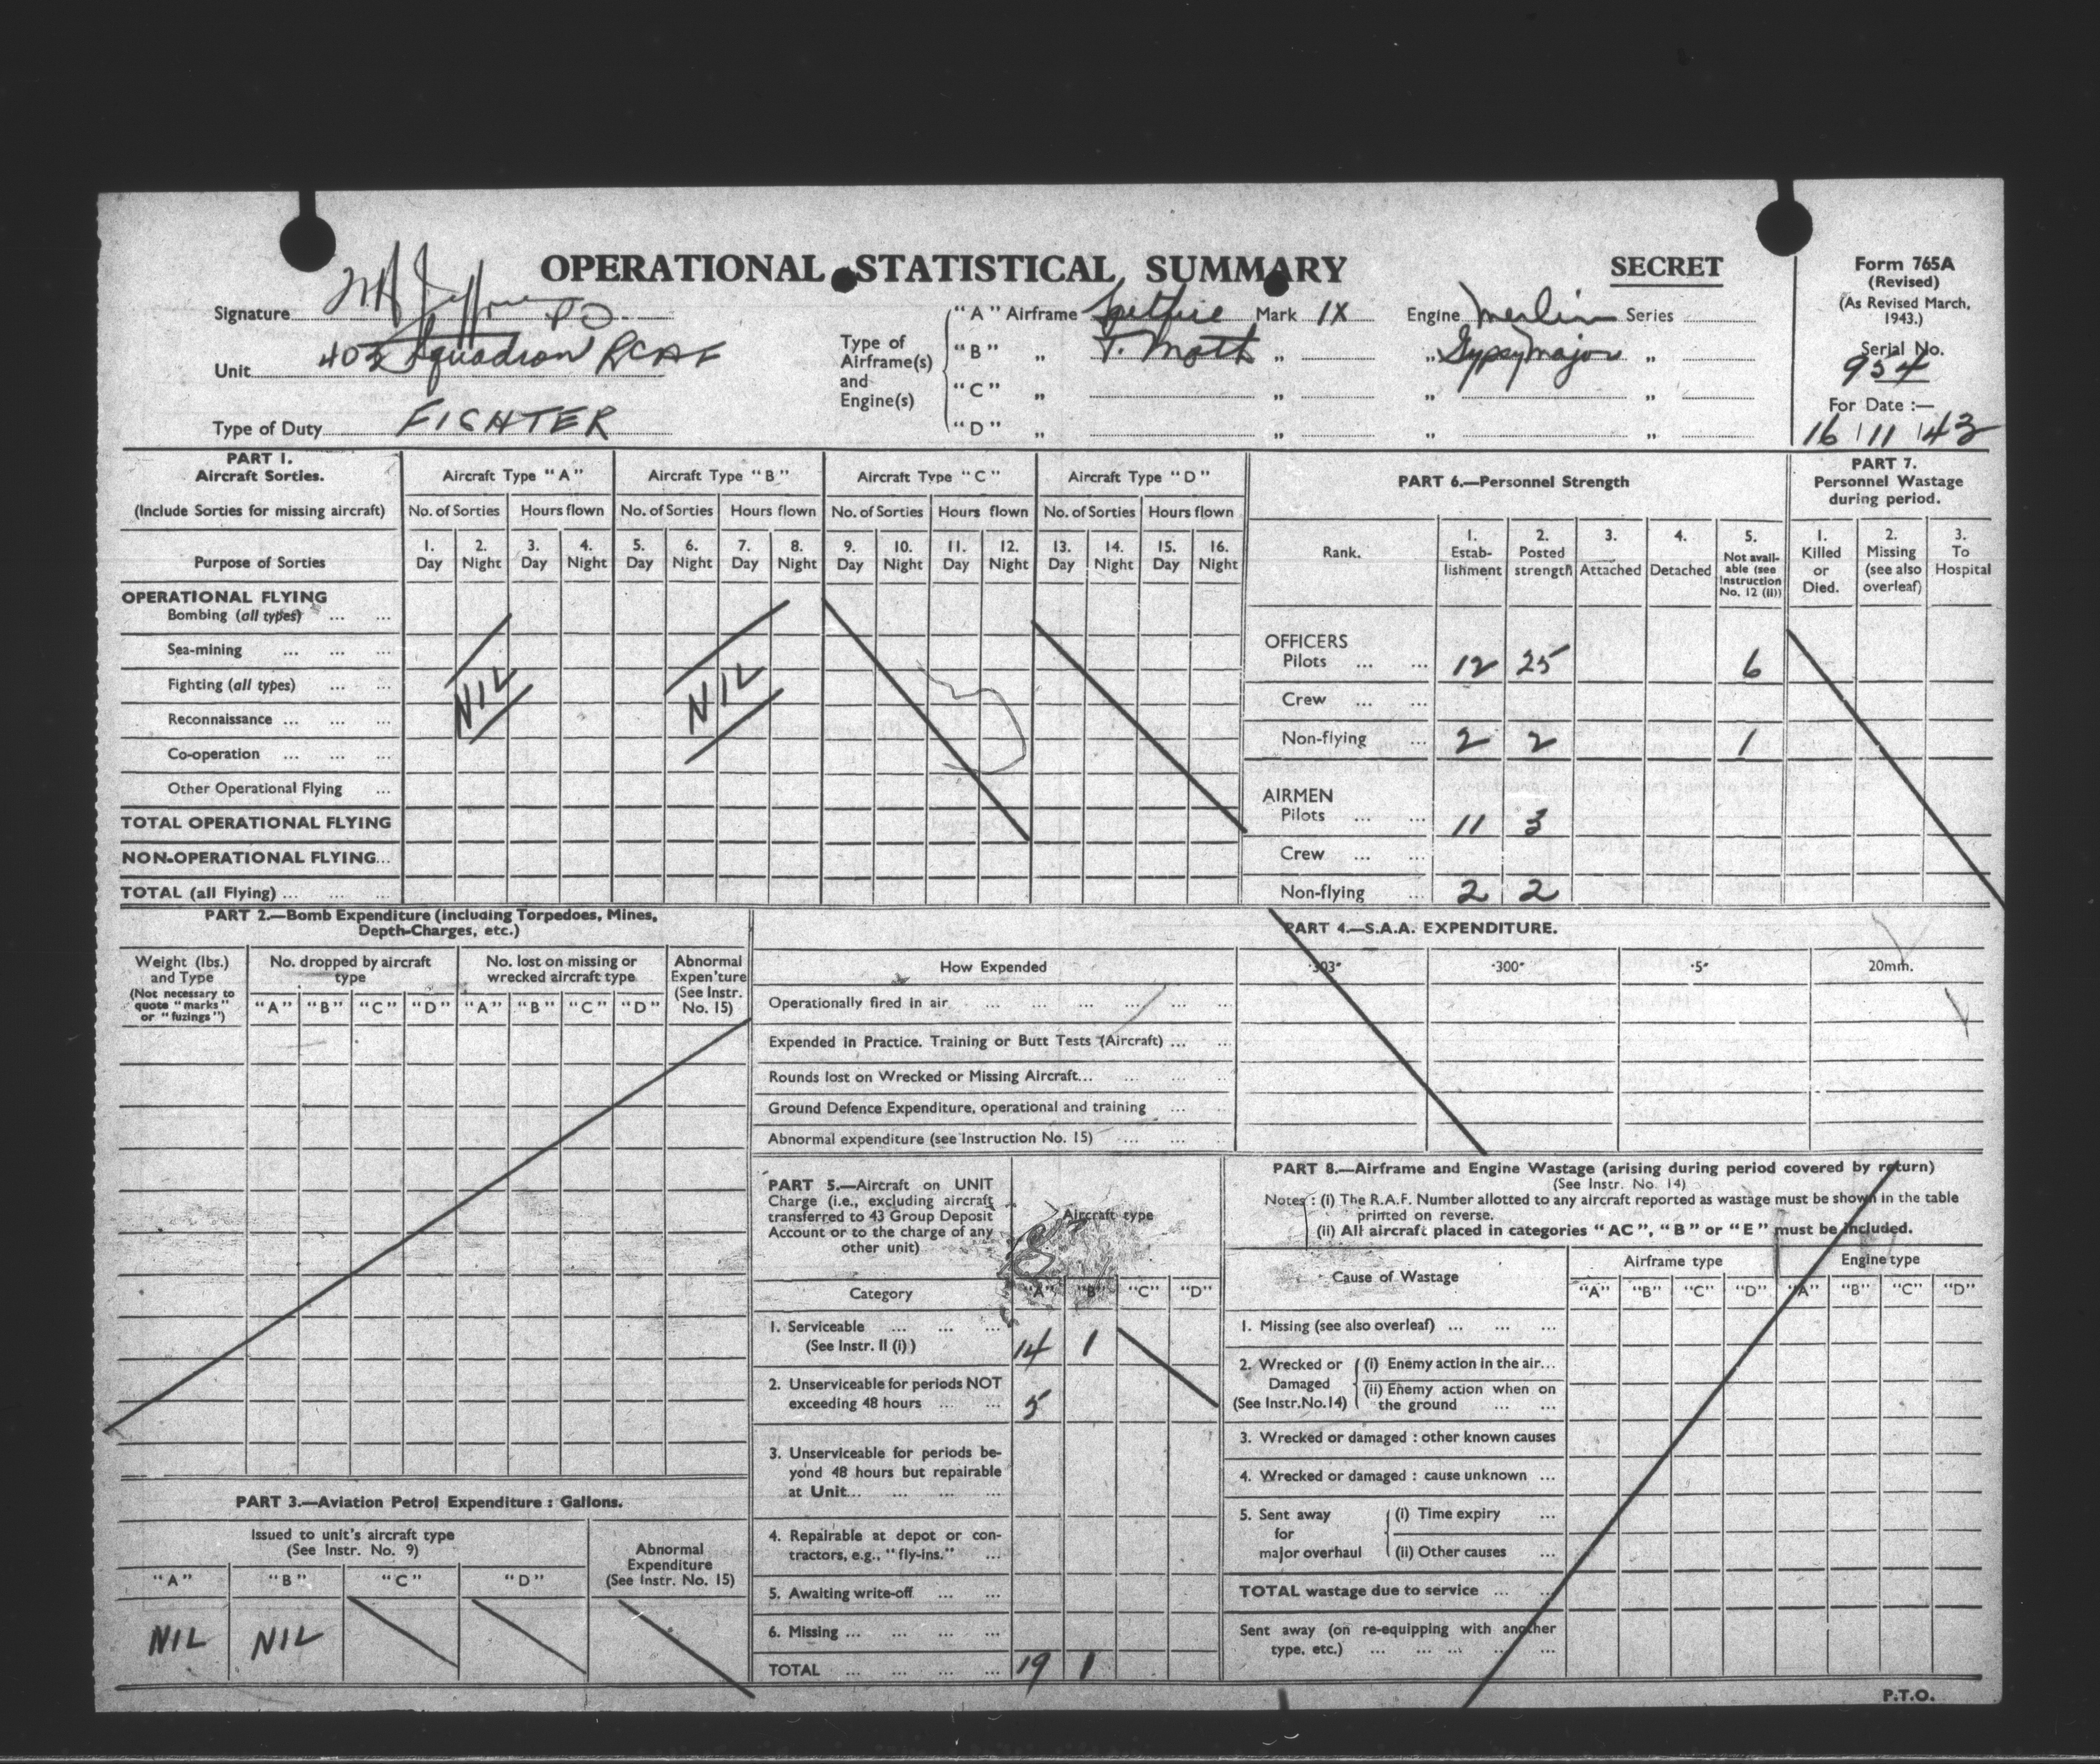 OPERATIONAL STATISTICAL SUMMARY
SECRET
Form 765A
(Revised)
(As Revised March, 1943.)
Serial No.
954
For Date :—
16 11 43
Signature
Unit Squadron RCAF
Type of Duty FIGHTER
Type of Airframe(s) and Engine(s)
"A" Airframe Spitfire Mark IX Engine Merlin Series
"B" „ T. Moth „ „ Gypsy Major „
"C" „ „ „ „
"D" „ „ „ „
PART I.
Aircraft Sorties.
(Include Sorties for missing aircraft)
Purpose of Sorties
Aircraft Type "A" Aircraft Type "B" Aircraft Type "C" Aircraft Type "D"
No. of Sorties Hours flown No. of Sorties Hours flown No. of Sorties Hours flown No. of Sorties Hours flown
1. Day 2. Night 3. Day 4. Night 5. Day 6. Night 7. Day 8. Night 9. Day 10. Night 11. Day 12. Night 13. Day 14. Night 15. Day 16. Night
OPERATIONAL FLYING
Bombing (all types) ... ...
Sea-mining ... ... ...
Fighting (all types) ... ...
NIL NIL
Reconnaissance ... ... ...
Co-operation ... ... ...
Other Operational Flying ...
TOTAL OPERATIONAL FLYING
NON-OPERATIONAL FLYING...
TOTAL (all Flying) ... ... ...
PART 6.—Personnel Strength
Rank.
1. Estab-lishment
2. Posted strength
3. Attached
4. Detached
5. Not avail-able (see Instruction No. 12 (II))
OFFICERS
Pilots ... ... 12 25 6
Crew ... ...
Non-flying ... 2 2 1
AIRMEN
Pilots ... ... 11 3
Crew ... ...
Non-flying ... 2 2
PART 7.
Personnel Wastage during period.
1. Killed or Died.
2. Missing (see also overleaf)
3. To Hospital
PART 2.—Bomb Expenditure (including Torpedoes, Mines, Depth-Charges, etc.)
Weight (lbs.) and Type
(Not necessary to quote "marks" or "fuzings")
No. dropped by aircraft type
No. lost on missing or wrecked aircraft type
Abnormal Expen'ture (See Instr. No. 15)
"A" "B" "C" "D" "A" "B" "C" "D"
PART 4.—S.A.A. EXPENDITURE.
How Expended ·303" ·300" ·5" 20mm.
Operationally fired in air ... ... ... ... ... ...
Expended in Practice. Training or Butt Tests (Aircraft) ... ...
Rounds lost on Wrecked or Missing Aircraft... ... ... ...
Ground Defence Expenditure, operational and training ... ...
Abnormal expenditure (see Instruction No. 15) ... ... ...
PART 3.—Aviation Petrol Expenditure : Gallons.
Issued to unit's aircraft type
(See Instr. No. 9)
Abnormal Expenditure (See Instr. No. 15)
"A" "B" "C" "D"
NIL NIL
PART 5.—Aircraft on UNIT Charge (i.e., excluding aircraft transferred to 43 Group Deposit Account or to the charge of any other unit)
Aircraft type
Category "A" "B" "C" "D"
1. Serviceable ... ... ...
(See Instr. II (i) ) 14 1
2. Unserviceable for periods NOT
exceeding 48 hours ... ... 5
3. Unserviceable for periods be-
yond 48 hours but repairable
at Unit... ... ... ...
4. Repairable at depot or con-
tractors, e.g., "fly-ins." ...
5. Awaiting write-off ... ...
6. Missing ... ... ... ...
TOTAL ... ... ... ... 19 1
PART 8.—Airframe and Engine Wastage (arising during period covered by return)
(See Instr. No. 14)
Notes : (i) The R.A.F. Number allotted to any aircraft reported as wastage must be shown in the table
printed on reverse.
(ii) All aircraft placed in categories "AC", "B" or "E" must be included.
Cause of Wastage
Airframe type Engine type
"A" "B" "C" "D" "A" "B" "C" "D"
1. Missing (see also overleaf) ... ... ...
2. Wrecked or Damaged (See Instr.No.14)
(i) Enemy action in the air...
(ii) Enemy action when on
the ground ... ...
3. Wrecked or damaged : other known causes
4. Wrecked or damaged : cause unknown ...
5. Sent away for major overhaul
(i) Time expiry ...
(ii) Other causes ...
TOTAL wastage due to service ... ...
Sent away (on re-equipping with another
type, etc.) ... ... ... ... ...
P.T.O.